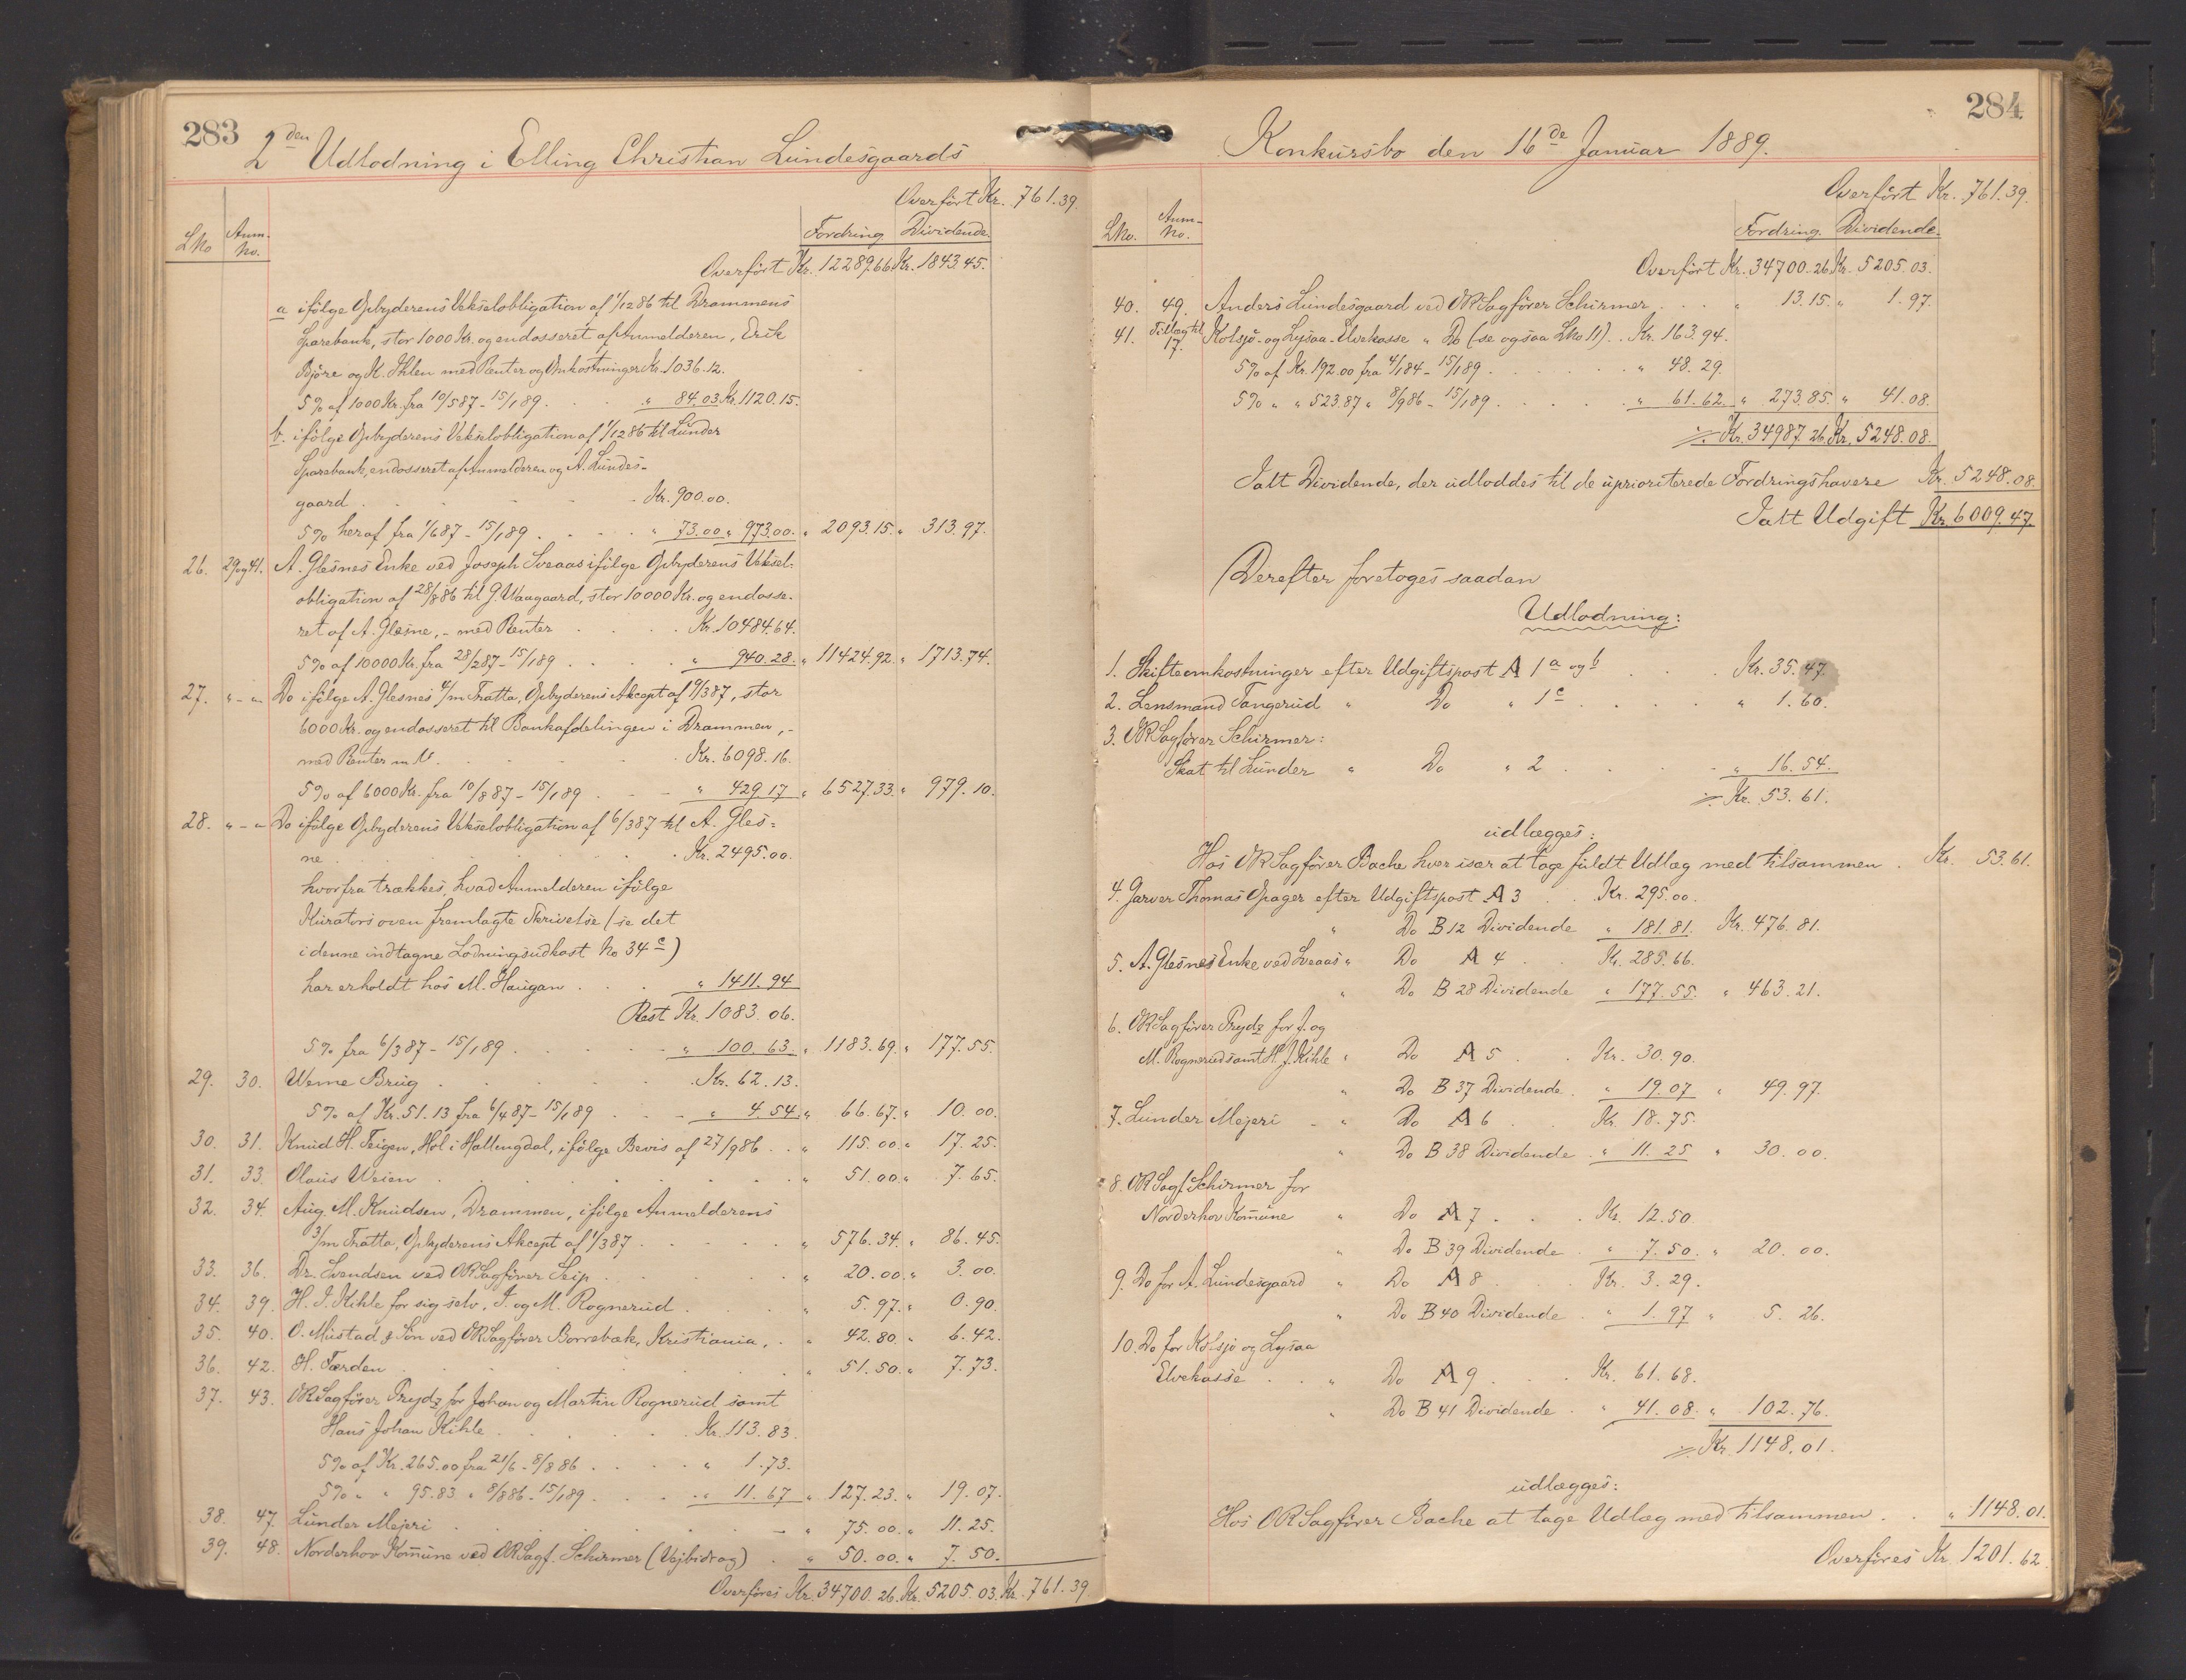 283
2den Udlodning i Elling Christian Lundesgaards
Overført Kr. 761.39.
LNo Anm. No. Fordring Dividende.
Overført Kr. 12289.66 Kr. 1843.45.
a ifølge Opbyderens Vekselobligation af 1/12 86 til Drammens
Sparebank, stor 1000 Kr. og endosseret af Anmelderen, Erik
Bjøre og K. Ihlen med Renter og Omkostninger Kr. 1036.12.
5% af 1000 Kr. fra 10/5 87 - 15/1 89 . . . " 84.03 Kr. 1120.15.
b. ifølge Opbyderens Vekselobligation af 1/12 86 til Lunder
Sparebank, endosseret af Anmelderen og A. Lundes-
gaard . . . . Kr. 900.00.
5% heraf fra 1/6 87 - 15/1 89 . . . . " 73.00 " 973.00. " 2093.15. " 313.97.
26. 29 og 41. A. Glesnes Enke ved Joseph Sveaas ifølge Opbyderens Veksel-
obligation af 28/8 86 til G. Waagaard, stor 10000 Kr. og endosse-
ret af A. Glesne, - med Renter . . . . Kr. 10484.64.
5% af 10000 Kr. fra 28/2 87 - 15/1 89 . . . . " 940.28. " 11424.92. " 1713.74.
27. " - " Do ifølge A. Glesnes 4/m Tratta, Opbyderens Akcept af 9/3 87, stor
6000 Kr. og endosseret til Bankafdelingen i Drammen, -
med Renter m. V. . . . . Kr. 6098.16.
5% af 6000 Kr. fra 10/8 87 - 15/1 89 . . - " 429.17 " 6527.33. " 979.10.
28. " - " Do ifølge Opbyderens Vekselobligation af 6/3 87 til A. Gles-
ne . . . . . . Kr. 2495.00.
hvorfra trækkes, hvad Anmelderen ifølge
Kurators oven fremlagte Skrivelse (se det
i denne indtagne Lodningsudkast No 34 c)
har erholdt hos M. Haugan . . . " 1411.94
Rest Kr. 1083.06.
5% fra 6/3 87 - 15/1 89 . . . . . " 100.63. " 1183.69. " 177.55.
29. 30. Werne Brug . . . . . Kr. 62.13.
5% af Kr. 51.13 fra 6/4 87 - 15/1 89 . . - " 4.54. " 66.67. " 10.00.
30. 31. Knud H. Teigen, Hol i Hallingdal, ifølge Bevis af 27/9 86 . . " 115.00. " 17.25.
31. 33. Olaus Weien . . . . . . . " 51.00. " 7.65.
32. 34. Aug. M. Knudsen, Drammen, ifølge Anmelderens
3/m Tratta, Opbyderens Akcept af 1/3 87 . . . . . " 576.34. " 86.45.
33. 36. Dr. Svendsen ved ORSagfører Seip . . . . " 20.00. " 3.00.
34. 39. H. J. Kihle for sig selv, J. og M. Rognerud . . . " 5.97. " 0.90.
35. 40. O. Mustad & Søn ved ORSagfører Borrebæk, Kristiania, . " 42.80 " 6.42.
36. 42. H. Færden . . . . . . . " 51.50. " 7.73.
37. 43. ORSagfører Prydz for Johan og Martin Rognerud samt
Hans Johan Kihle . . . . . Kr. 113.83.
5% af Kr. 265.00 fra 21/6 - 8/8 86 . . . . " 1.73.
5% " " 95.83 " 8/8 86 - 15/1 89 . . . . " 11.67 " 127.23. " 19.07.
38. 47. Lunder Mejeri . . . . . . . - " 75.00. " 11.25.
39. 48. Norderhov Kommune ved ORSagf. Schirmer (Vejbidrag) . " 50.00. " 7.50.
Overføres Kr. 34700.26. Kr. 5205.03. Kr. 761.39.
284
Konkursbo den 16de Januar 1889.
Overført Kr. 761.39.
LNo. Anm-No. Fordring. Dividende.
Overført Kr. 34700.26 Kr. 5205.03.
40. 49. Anders Lundesgaard ved ORSagfører Schirmer . . . " 13.15. " 1.97.
41. Tillæg til 17. Kolsjø- og Lysaa-Elvekasse " Do (se ogsaa LNo 11) . . Kr. 163.94.
5% af Kr. 192.00 fra 4/1 84 - 15/1 89 . . . . . " 48.29.
5% " " 523.87 " 8/9 86 - 15/1 89 . . . . . " 61.62. " 273.85. " 41.08.
Kr. 34987.26 Kr. 5248.08.
Ialt Dividende, der udloddes til de uprioriterede Fordringshavere Kr. 5248.08.
Ialt Udgift Kr. 6009.47.
Derefter foretoges saadan
Udlodning:
1. Skifteomkostninger efter Udgiftspost A 1 a og b . . . Kr. 35.47.
2. Lensmand Tangerud " Do " 1 c . . . . " 1.60.
3. ORSagfører Schirmer:
Skat til Lunder " Do " 2 . . . . " 16.54.
Kr. 53.61.
udlægges:
Hos ORSagfører Bache hver især at tage fuldt Udlæg med tilsammen . Kr. 53.61.
4. Garver Thomas Opager efter Udgiftspost A 3 . . Kr. 295.00.
" Do B 12 Dividende " 181.81. Kr. 476.81.
5. A. Glesnes Enke ved Sveaas " Do A 4 . . Kr. 285.66.
" Do B 28 Dividende " 177.55. " 463.21.
6. ORSagfører Prydz for J. og
M. Rognerud samt H. J. Kihle " Do A 5 . . Kr. 30.90.
" Do B 37 Dividende . " 19.07 " 49.97.
7. Lunder Mejeri - " Do A 6 . . Kr. 18.75.
" Do B 38 Dividende . " 11.25 " 30.00.
8. ORSagf. Schirmer for
Norderhov Kommune " Do A 7 . . . Kr. 12.50.
" Do B 39 Dividende . " 7.50. " 20.00.
9. Do for A. Lundesgaard " Do A 8 . . . Kr. 3.29.
" Do B 40 Dividende . " 1.97 " 5.26.
10. Do for Kolsjø og Lysaa
Elvekasse . . " Do A 9 . . . Kr. 61.68.
" Do B 41 Dividende . " 41.08. " 102.76.
Kr. 1148.01.
udlægges:
Hos ORSagfører Bache at tage Udlæg med tilsammen . . " 1148.01.
Overføres Kr. 1201.62.